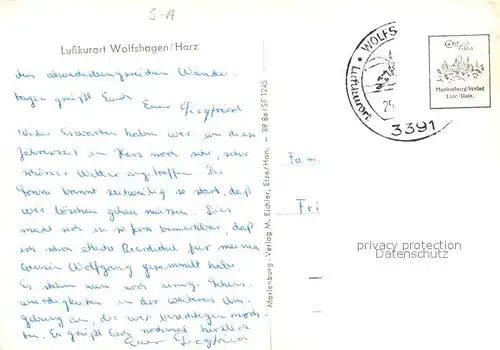 S-A
Luftkurort Wolfshagen/Harz
den abwechslungsreichen Wander-
tagen grüßt Euch
Euer Siegfried
Wider Erwarten haben wir um diese
Jahreszeit im Harz noch sehr, sehr
schönes Wetter angetroffen. Die
Sonne brennt zeitweilig so stark, daß
wir löschen gehen müssen. Dies
macht sich in so fern bemerkbar, daß
ich schon etliche Bierdeckel für meinen
Cousin Wolfgang gesammelt habe.
Es stehen nun noch einige Sehens-
würdigkeiten in der weiteren Um-
gebung an, die wir besichtigen möch-
ten. Es grüßt Euch nochmal herzlich
Euer Siegfried
Marienburg-Verlag M. Eichler, Elze/Han. — 89 Be/SF 1245
Fam
Fri
WOLFS
Luftkurort
25
3391
Marienburg-Verlag
Elze/Han.
privacy protection
Datenschutz